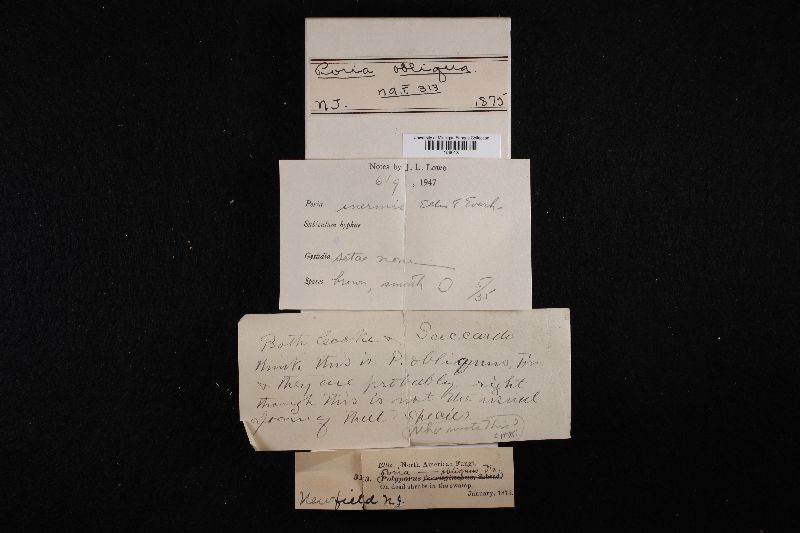 Poria obliqua.
N.A.F. 313
N.J. 1875
University of Michigan Fungus Collection
Notes by J. L. Lowe
6/9, 1947
Poria inermis Ellis & Everh.
Subiculum hyphae
Cystidia setae none
Spores brown, smooth
Both Cooke & Saccardo
think this is P. obliquus, Fr.
& they are probably right
though this is not the usual
form of that species
Who wrote this?
Ellis, North American Fungi.
Poria obliqua Fr.
313. (Polyporus
On dead shrubs in the swamp.
January, 187
Newfield N.J.